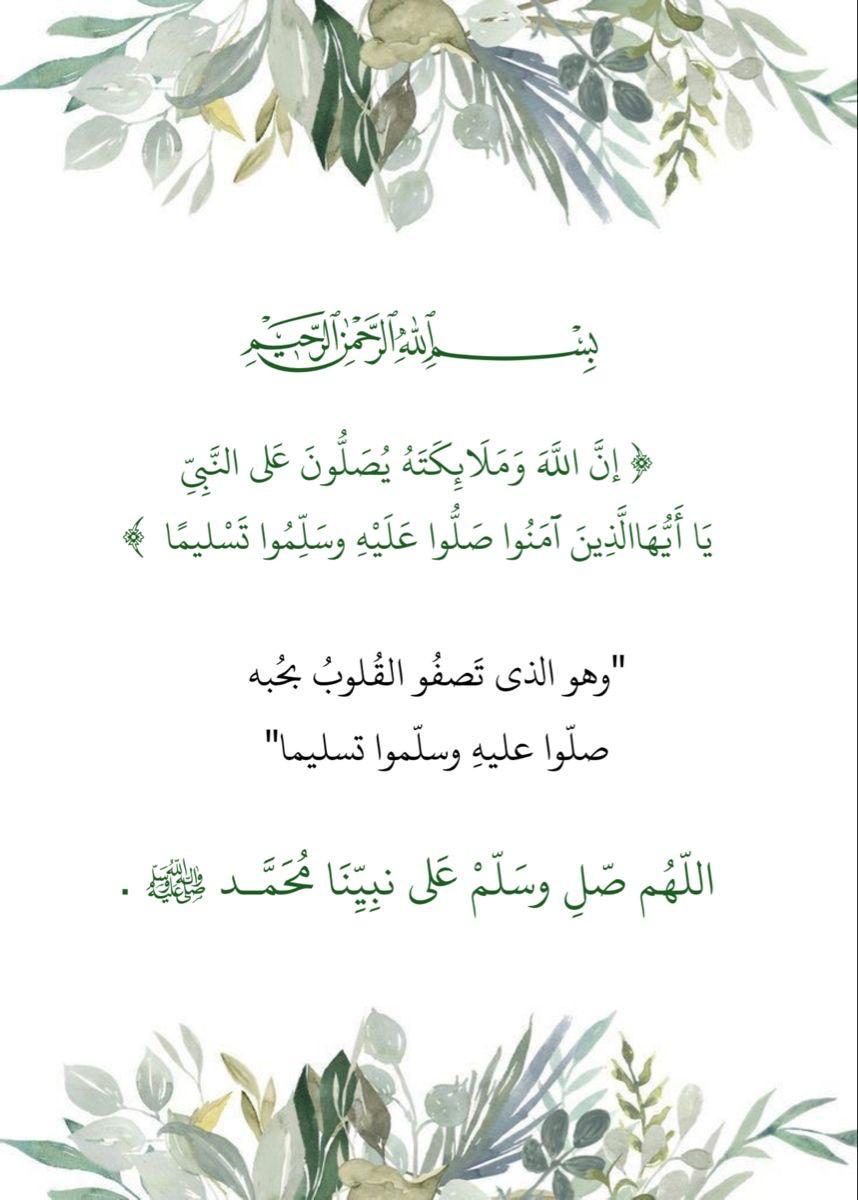 بِسْمِ اللَّهِ الرَّحْمَٰنِ الرَّحِيمِ
﴿ إنَّ اللَّهَ وَمَلَائِكَتَهُ يُصَلُّونَ عَلى النَّبِيِّ
يَا أَيُّهَاالَّذِينَ آمَنُوا صَلُّوا عَلَيْهِ وسَلِّمُوا تَسْليمًا ﴾
"وهو الذى تَصفُو القُلوبُ بحُبه
صلّوا عليهِ وسلّموا تسليما"
اللّهُم صّلِ وسَلّمْ عَلى نبِيِّنَا مُحَمَّــد ﷺ .